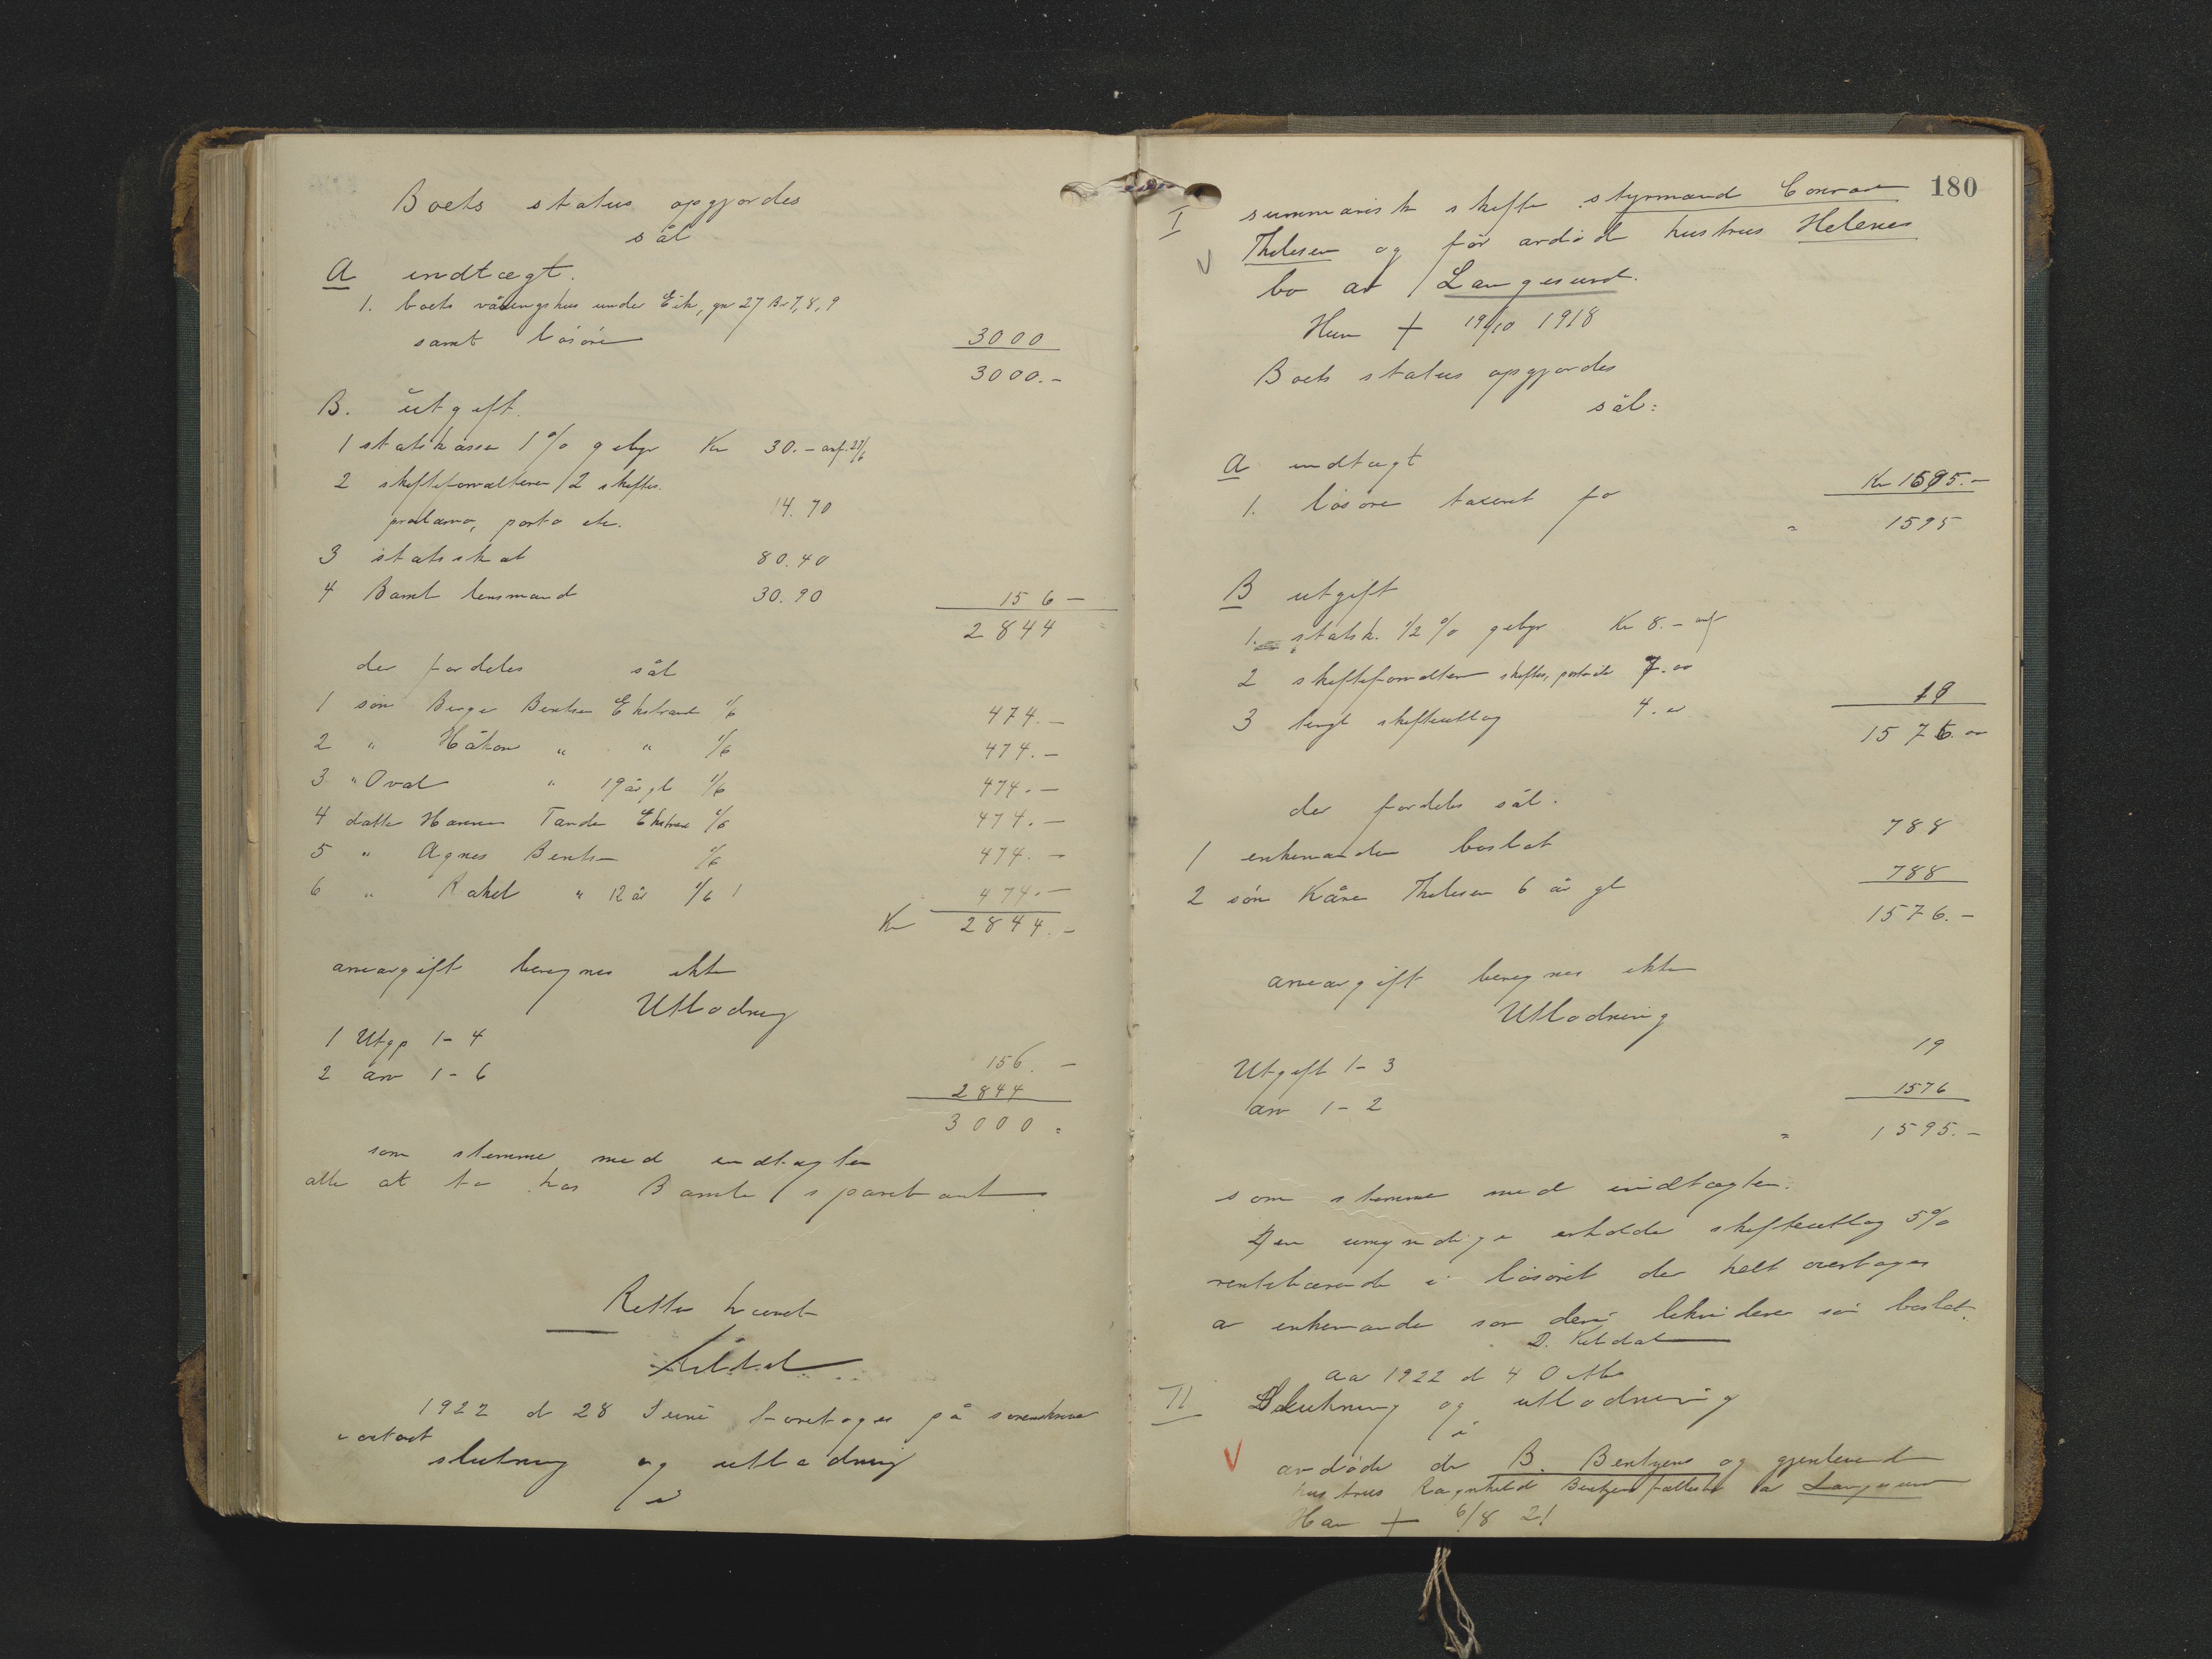 Boets status opgjordes
sål
A indtægt.
1. boets våningshus under Eik, gr 27 Br 7, 8, 9
samt løsøre 3000
3000.-
B. Utgift.
1 statskassen 1% gebyr Kr 30.- anf. 27/6
2 skifteforvalteren 2 skiftes.
proclama, porto etc. 14.70
3 statsskat 80.40
4 Bamle lensmand 30.90 156 -
2844
der fordeles sål
1 søn Birger Bentsen Ekstrand 1/6 474.-
2 " Håkon " " 1/6 474.-
3 " " 19 år gl 1/6 474.-
4 datter Hanna Tande 1/6 474.-
5 " Agnes Bentsen 1/6 474.-
6 " Rakel " 12 år 1/6 474.-
Kr 2844.-
arveavgift beregnes ikke
Utlodning
1 Utgp 1-4 156.-
2 arv 1-6 2844
3000 =
som stemmer med indtægten
alle at ta hos Bamle sparebank
Retten hævet
Keldal
1922 d 28 Juni foretoges på sorenskriver
contoret
slutning og utlodning
i
180
I summarisk skifte styrmand Conrad
Thelesen og før avdøde hustrus Helenes
bo av Langesund.
Hun + 19/10 1918
Boets status opgjordes
sål:
A indtægt
1. løsøre taxeret for Kr 1595.-
" 1595
B utgift
1. statsk. 1/2 % gebyr Kr 8.- anf
2 skifteforvalteren skiftes, porto etc 7.00
3 tingl skifteutlæg 4.00 19
1576.00
der fordeles sål.
1 enkemanden boslod 788
2 søn Kåre Thelesen 6 år gl 788
1576.-
arveavgift beregnes ikke
Utlodning
Utgift 1-3 19
arv 1-2 1576
" 1595.-
som stemmer med indtægten.
Den umyndige erholder skifteutlæg 5%
rentebærende i løsøret der helt overtages
av enkemanden som deri likviderer sin boslod.
D. Keldal
Aar 1922 d 4 Octbr
II Slutning og utlodning
i
avdøde B. Bentzens og gjenlevende
hustrus Ragnhild Bentzens fællesbo av Langesund
Han + 6/8 21